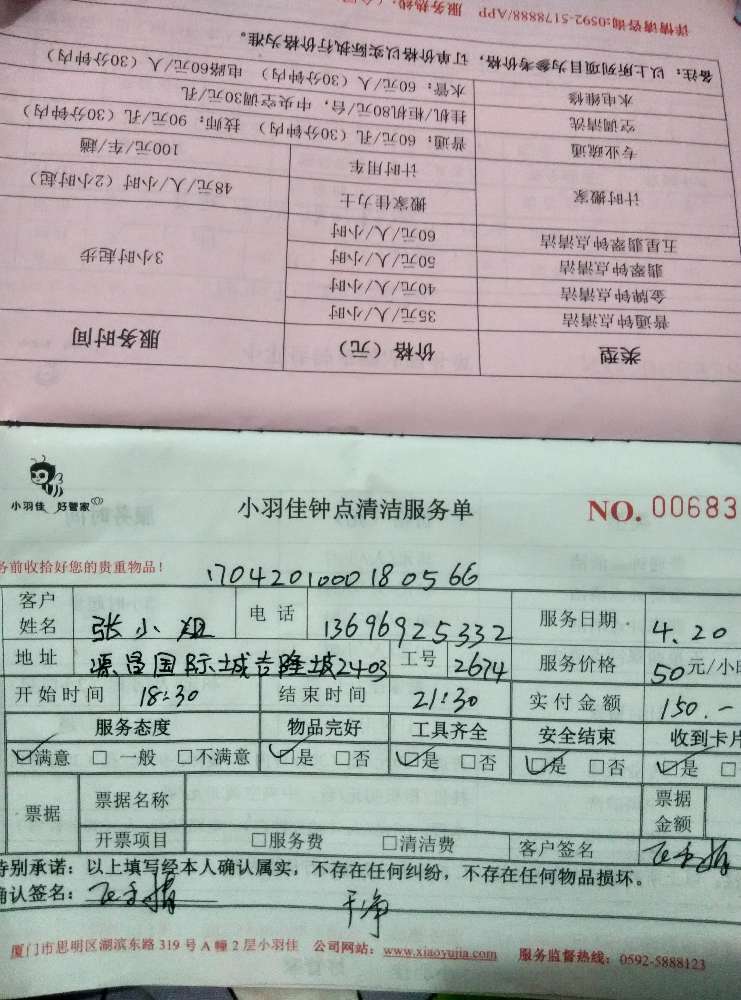 类型 价格（元） 服务时间
普通钟点清洁 35元/人/小时 3小时起步
金牌钟点清洁 40元/人/小时
翡翠钟点清洁 50元/人/小时
五星翡翠钟点清洁 60元/人/小时
计时搬家 搬家佳力士 48元/人/小时（2小时起）
计时用车 100元/车/趟
专业疏通 普通：60元/孔（30分钟内） 技师：90元/孔（30分钟内）
空调清洗 挂机/柜机80元/台，中央空调30元/孔
水电维修 水管：60元/人（30分钟内） 电路60元/人（30分钟内）
备注：以上所列项目为参考价格，订单价格以实际执行价格为准。
详情请咨询:0592-5178888/APP 服务热线：
小羽佳 好管家
小羽佳钟点清洁服务单
NO. 00683
务前收拾好您的贵重物品！
1704201000180566
客户姓名 张小姐 电话 13696925332 服务日期 4.20
地址 源昌国际城吉隆坡2403 工号 2674 服务价格 50元/小时
开始时间 18:30 结束时间 21:30 实付金额 150.-
服务态度 物品完好 工具齐全 安全结束 收到卡片
☑满意 □一般 □不满意 ☑是 □否 ☑是 □否 ☑是 □否 ☑是 □
票据 票据名称 票据金额
开票项目 □服务费 □清洁费 客户签名
特别承诺：以上填写经本人确认属实，不存在任何纠纷，不存在任何物品损坏。
确认签名： 干净
厦门市思明区湖滨东路 319 号 A 幢 2 层小羽佳 公司网站：www.xiaoyujia.com 服务监督热线：0592-5888123